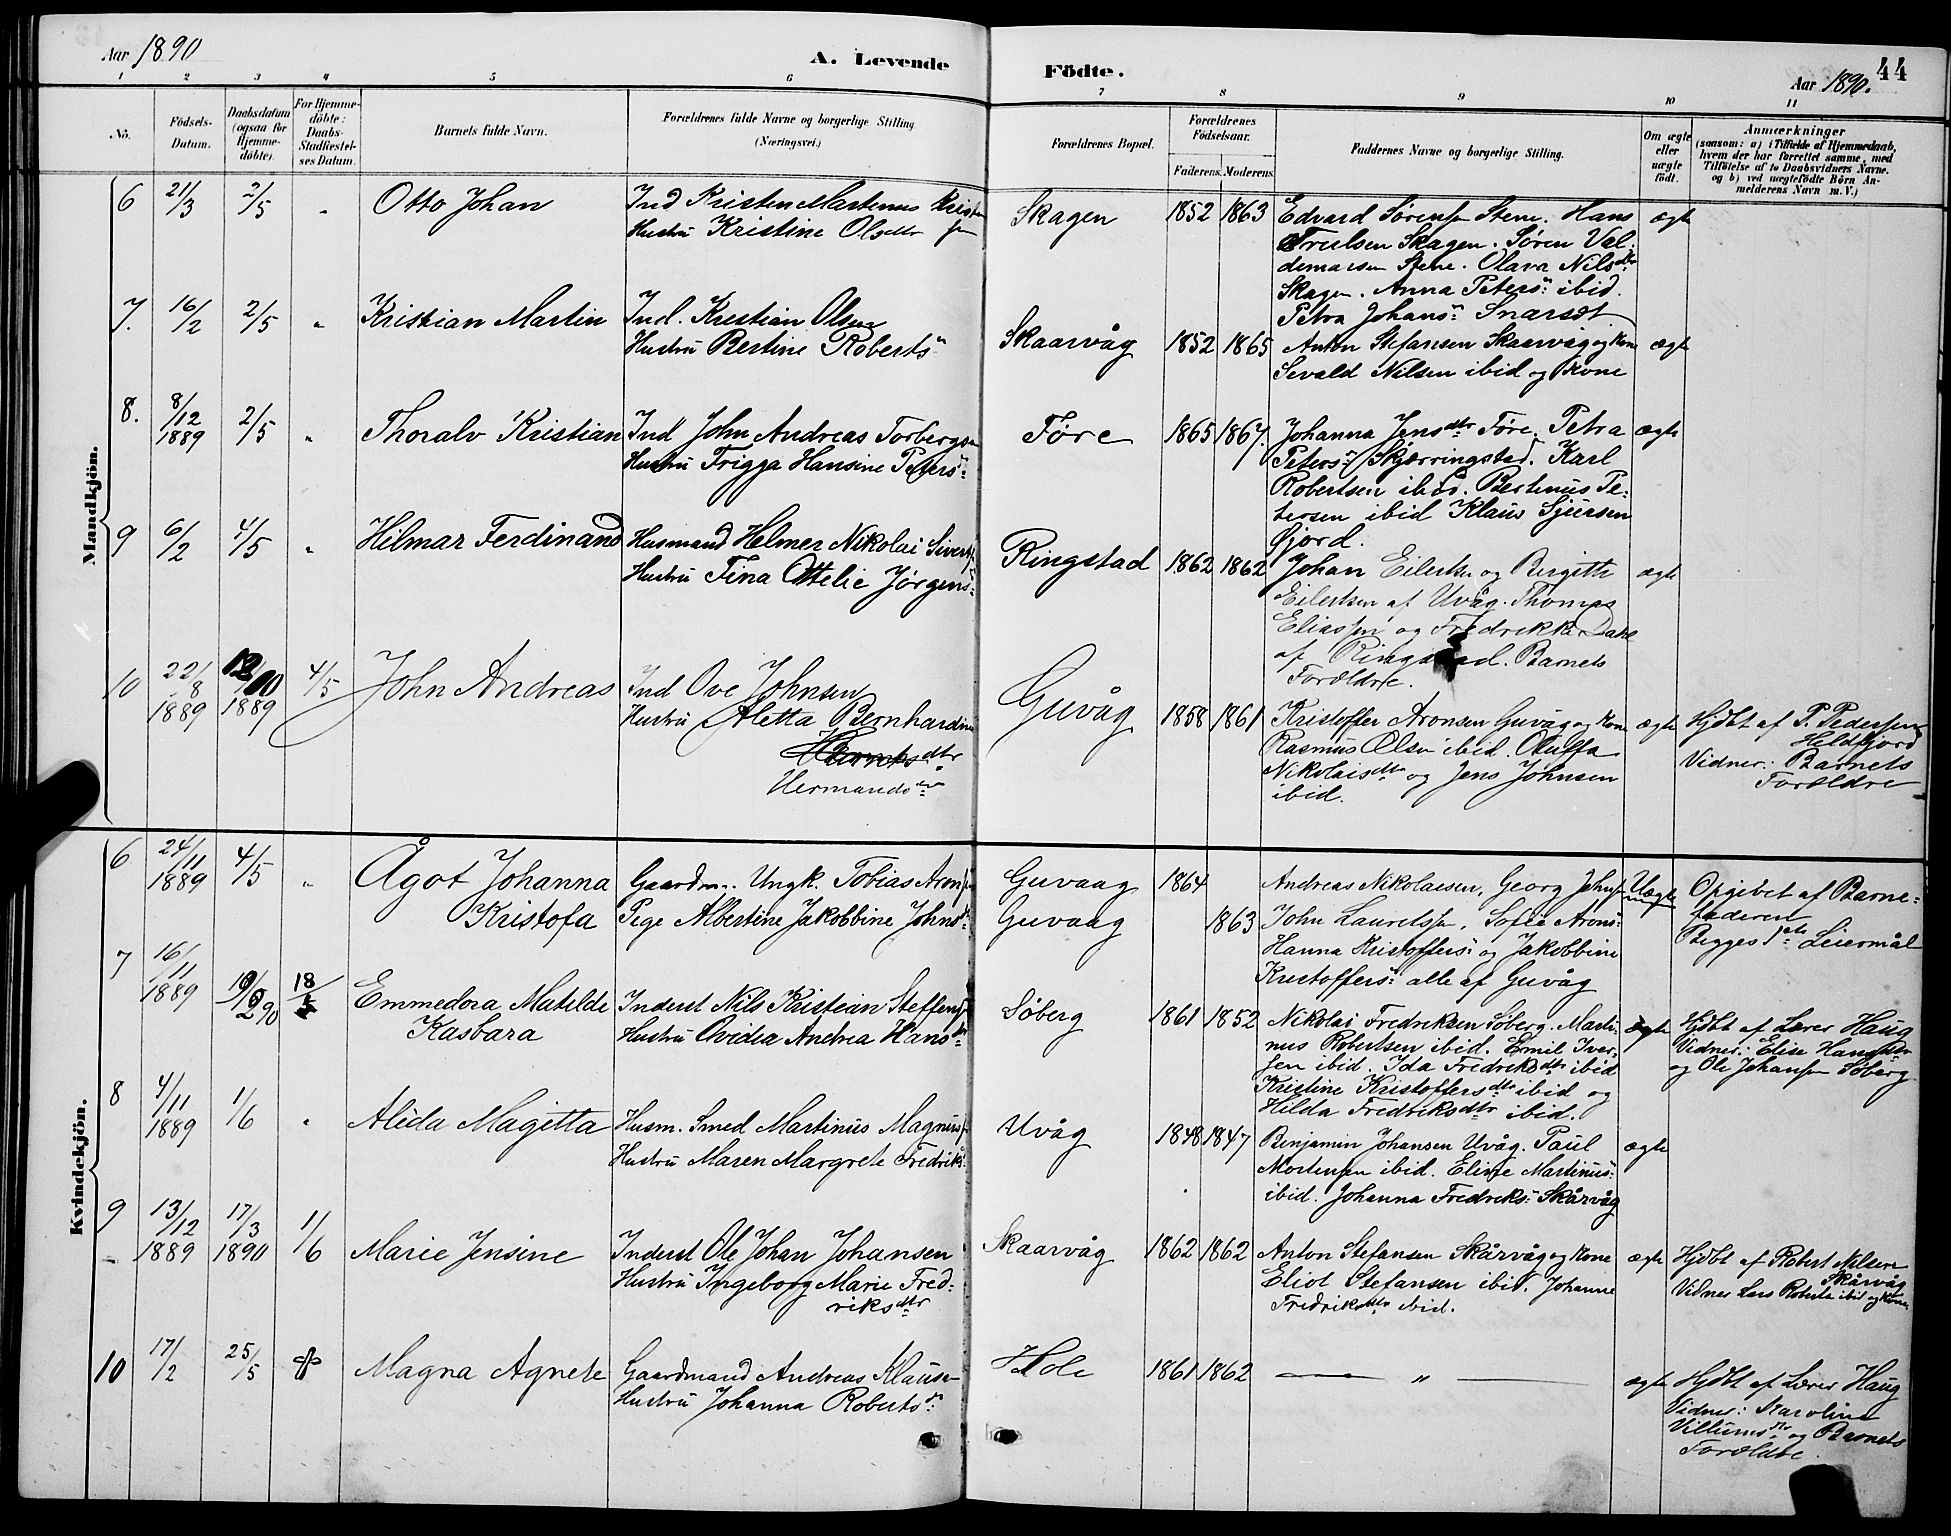 Aar 1890
A. Levende
Födte.
44
Aar 1890.
1 2 3 4 5 6 7 8 9 10 11
No.
Födsels-
Datum.
Daabsdatum
(ogsaa for
Hjemme-
döbte).
For Hjemme-
döbte:
Daabs-
Stadfæstel-
ses Datum.
Barnets fulde Navn.
Forældrenes fulde Navne og borgerlige Stilling
(Næringsvei.)
Forældrenes Bopæl.
Forældrenes
Födselsaar.
Faderens. Moderens.
Faddernes Navne og borgerlige Stilling.
Om ægte
eller
uægte
födt.
Anmærkninger
(saasom: a) i Tilfælde af Hjemmedaab,
hvem der har forrettet samme, med
Tilföielse af to Daabsvidners Navne.
og b) ved uægtefödte Börn An-
melderens Navn m. V.)
Mandkjön.
6 21/3 2/5 " Otto Johan
Ind Kristen Martenus Kristen
sen
Hustru Kristine Olsdtr
Skagen 1852 1863
Edvard Sørensen Stene. Hans
Trulsen Skagen. Søren Val-
demarsen Stene. Olava Nilsdtr
Skagen. Anna Peters" ibid.
Petra Johans" Snarset
ægte
7. 16/2 2/5 " Kristian Martin
Ind. Kristian Olsen
Hustru Bertine Roberts"
Skaarvåg 1852 1865
Anton Stefansen Skaarvåg og Kone
Sevald Nilsen ibid og Kone
ægte
8. 8/12 1889 2/5 " Thoralv Kristian
Ind John Andreas Torbergsen
Hustru Frigga Hansine Peters"
Føre 1865 1867.
Johanna Jensdtr Føre. Petra
Peters" Skjærringstad. Karl
Robertsen ibid. Bertinus Pe-
tersen ibid Klaus Sjursen
Gjord.
ægte
9 6/2 4/5 " Hilmar Ferdinand
Husmand Helmer Nikolai Sivertsen
Hustru Tina Ottelie Jørgens"
Ringstad 1862 1862
Johan Eilertsen og Bergitte
Eilertsen af Uvåg. Thomas
Eliassen og Fredrikke Dahl
af Ringstad. Barnets
Forældre.
ægte
10 22/8 1889 12/10 1889 4/5 John Andreas
Ind Ove Johnsen
Hustru Aletta Bernhardine
Hermandsdtr
Guvåg 1858 1861
Kristoffer Aronsen Guvåg og Kone
Rasmus Olsen ibid. Oluffa
Nikolaisdtr og Jens Johnsen
ibid.
ægte
Hjdbt af P. Pedersen
Heldfjord
Vidner: Barnets
Forældre
Kvindekjön.
6 24/11 1889 4/5 " Ågot Johanna
Kristofa
Gaardm.. Ungk. Tobias Aronsen
Pige Albertine Jakobbine Johnsdtr
Guvaag 1864
Guvaag 1863
Andreas Nikolaisen, Georg Johnsen
John Lauretssen, Sofie Arons"
Hanna Kristoffers" og Jakobbine
Kristoffers" alle af Guvåg
Uægte
Opgivet af Barne-
faderen
Begges 1ste Leiermål
7 16/11 1889 19/2 90 18/5 Emmedora Matilde
Kasbara
Inderst Nils Kristian Steffensen
Hustru Ovidia Andrea Hansdtr
Söberg 1861 1852
Nikolai Fredriksen Söberg. Marti-
nus Robertsen ibid. Emil Iver-
sen ibid. Ida Fredriksdtr ibid
Kristine Kristoffersdtr ibid og
Hilda Fredriksdtr ibid.
ægte
Hjdbt af Lærer Haug
Vidner: Elise Hansdtr
og Ole Johansen Söberg
8 4/11 1889 1/6 " Alida Magitta
Husm. Smed Martinus Magnussen
Hustru Maren Margrete Fredriks"
Uvåg 1848 1847
Benjamin Johansen Uvåg. Paul
Mortensen ibid. Eline Martinus"
ibid. Johanna Fredriks" Skårvåg
ægte
9 13/12 1889 17/3 1890 1/6 Marie Jensine
Inderst Ole Johan Johansen
Hustru Ingeborg Marie Fred-
riksdtr
Skaarvåg 1862 1862
Anton Stefansen Skårvåg og Kone
Eliot Stefansen ibid. Johanne
Fredriksdtr ibid.
ægte
Hjdbt af Robert Nilsen
Skårvåg
Vidner Lars Roberts ibid og Kone
10 17/2 25/5 Magna Agnete
Gaardmand Andreas Klausen
Hustru Johanna Robertsd"
Hole 1861 1862
— " —
ægte
Hjdbt af Lærer Haug
Vidner: Karoline
Villumsdtr og Barnets
Forældre.